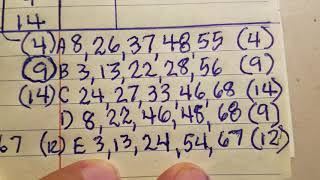 14
(4) A 8, 26, 37, 48, 55 (4)
(9) B 3, 13, 22, 28, 56 (9)
(14) C 24, 27, 33, 46, 68 (14)
D 8, 22, 46, 48, 68 (9)
67 (12) E 3, 13, 24, 54, 67 (12)